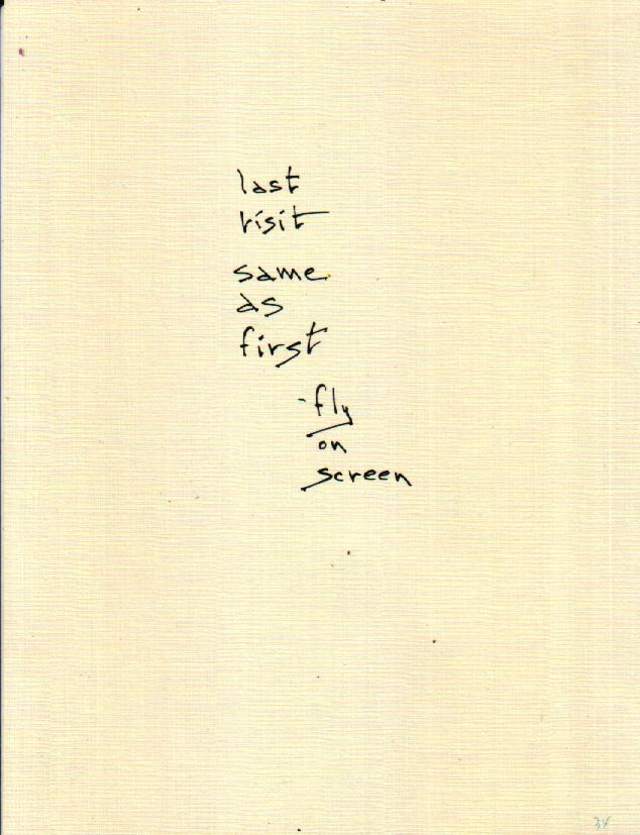 last
visit
same
as
first
-fly
on
screen